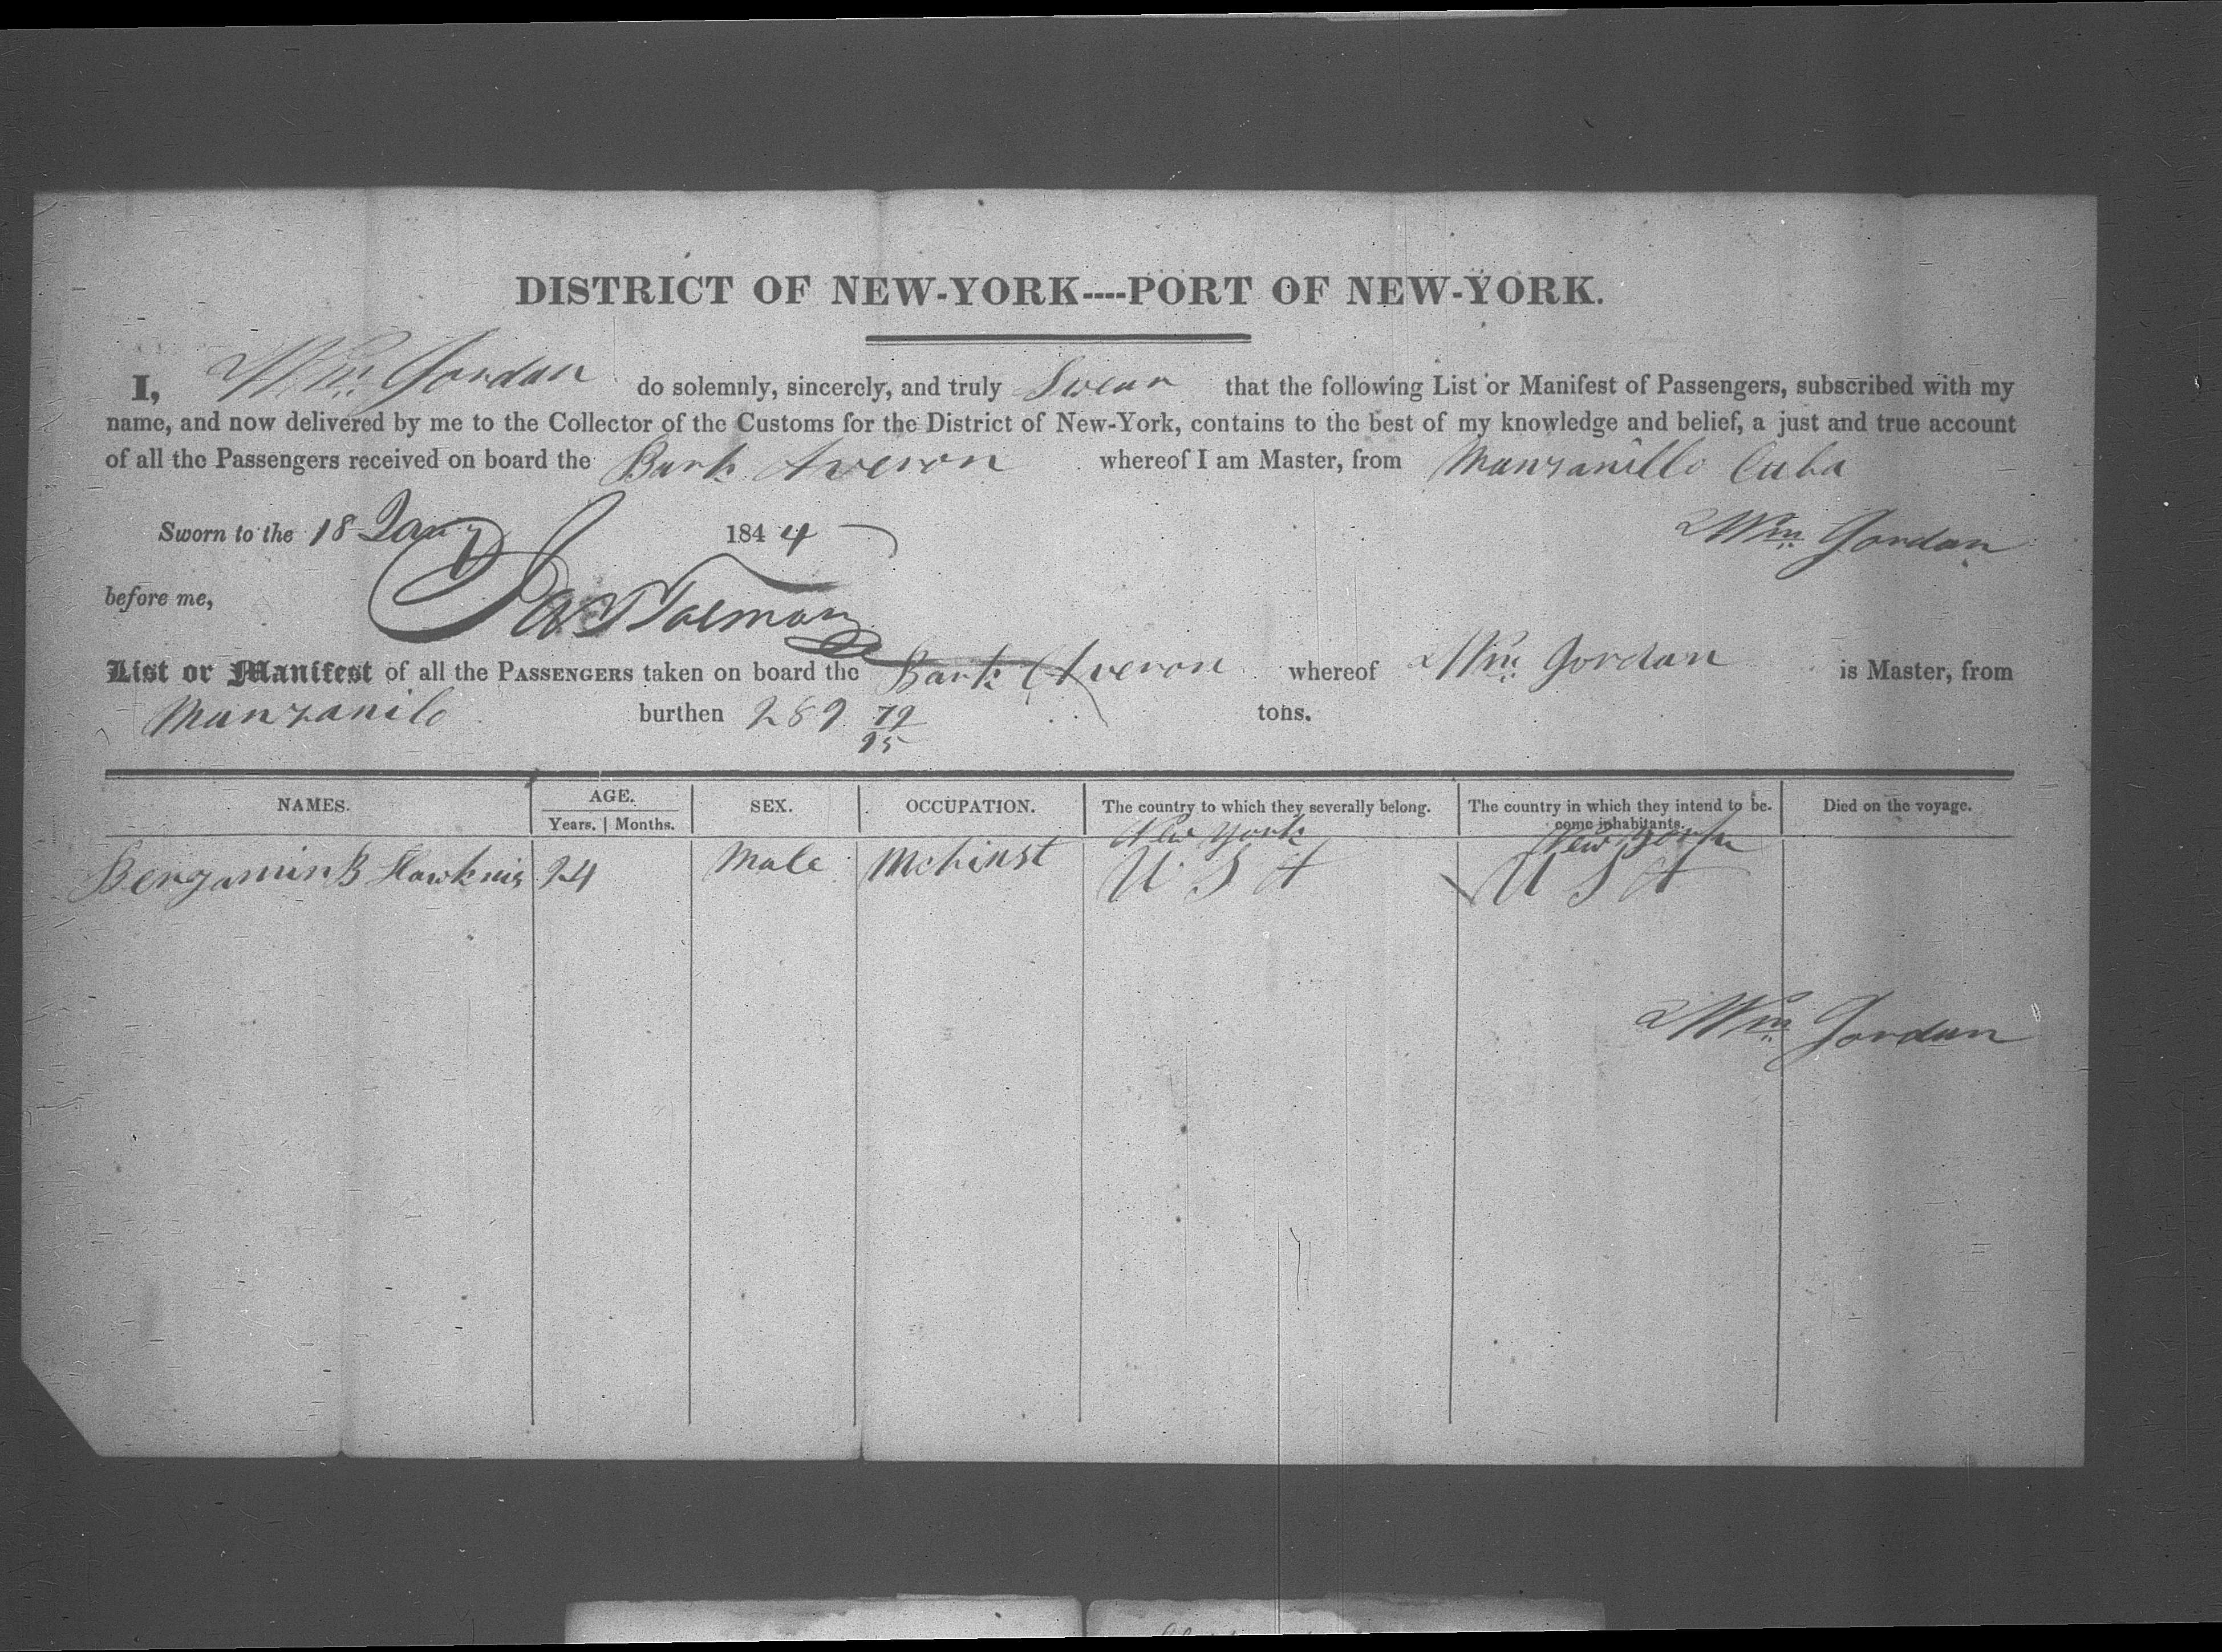 DISTRICT OF NEW-YORK----PORT OF NEW-YORK.
I, Wm Gordan do solemnly, sincerely, and truly Swear that the following List or Manifest of Passengers, subscribed with my
name, and now delivered by me to the Collector of the Customs for the District of New-York, contains to the best of my knowledge and belief, a just and true account
of all the Passengers received on board the Bark Averon whereof I am Master, from Manzanillo Cuba
Sworn to the 18 Jany 1844
Wm Gordan
before me,
List or Manifest of all the PASSENGERS taken on board the Bark Averon whereof Wm Gordan is Master, from
Manzanilo burthen 289 79/95 tons.
NAMES. AGE. Years. | Months. SEX. OCCUPATION. The country to which they severally belong. The country in which they intend to be- come inhabitants. Died on the voyage.
New York New York
Benjamin B Hawkins 24 Male Mchinst U S A U S A
Wm Gordan